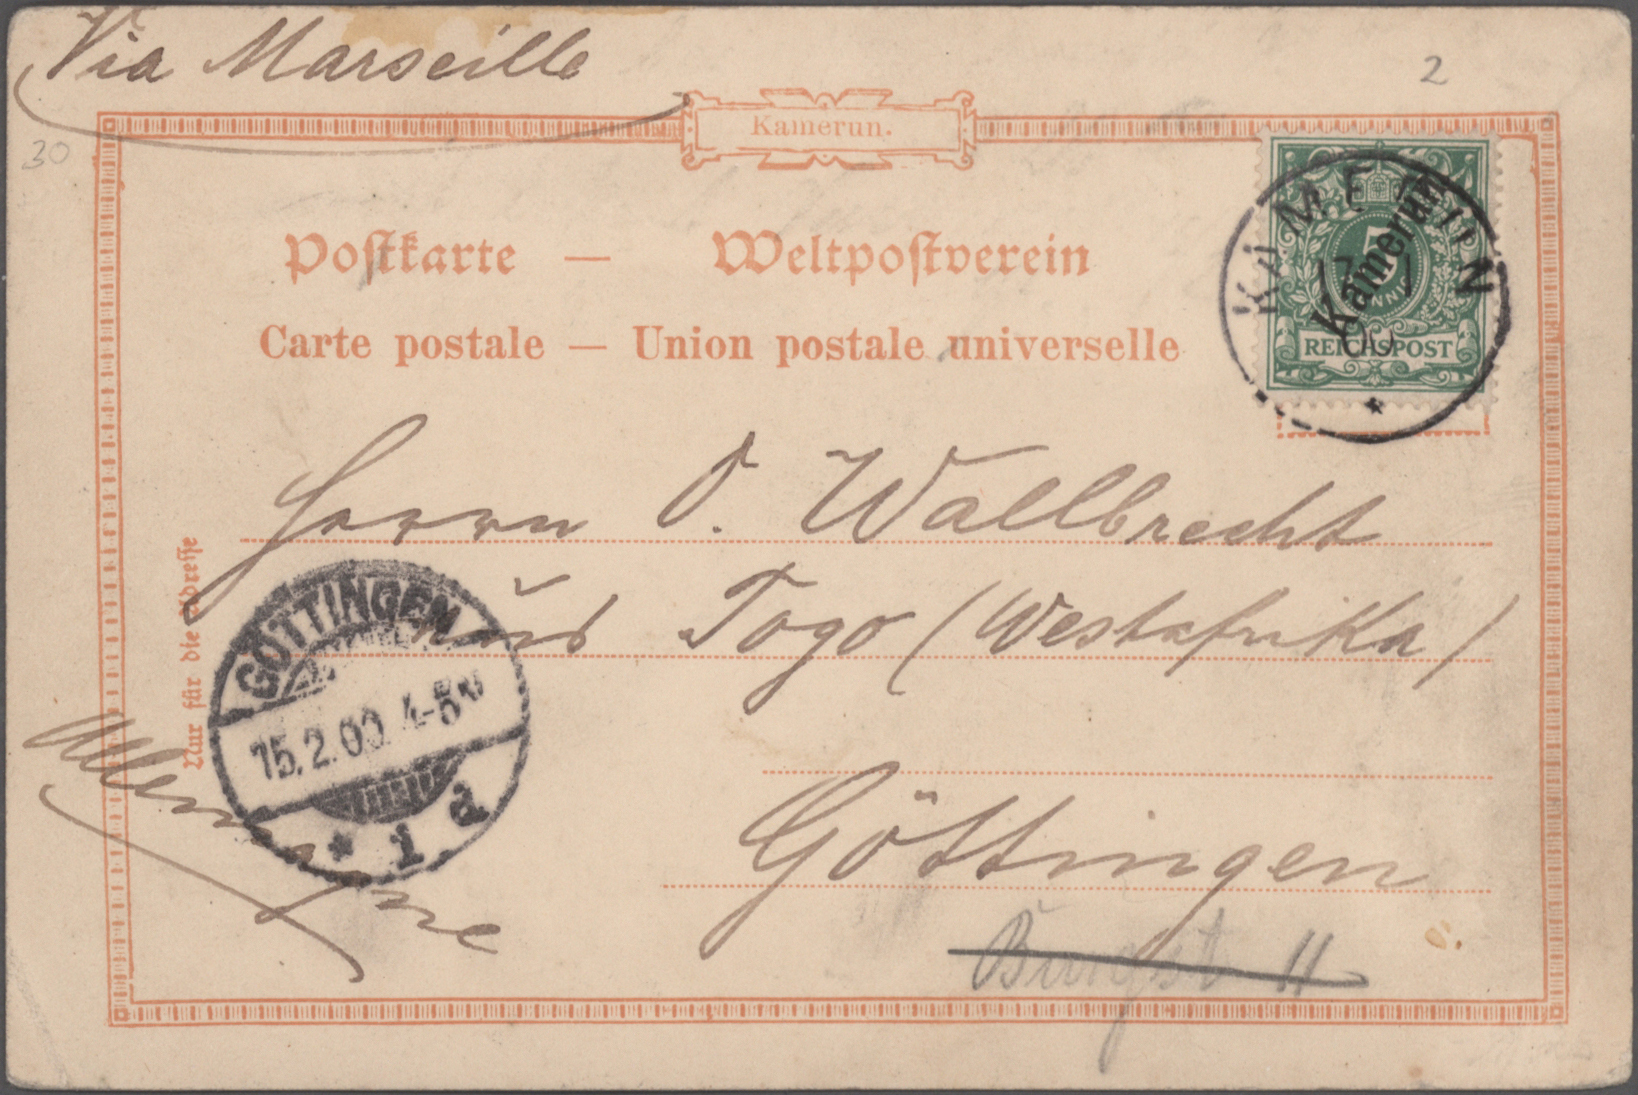 Via Marseille
2
30
Kamerun.
Poſtkarte — Weltpoſtverein
Carte postale — Union postale universelle
KAMERUN
17 1
00
*
Kamerun
5
PFENNIG
REICHSPOST
Herrn O. Wallbrecht
aus Togo (Westafrika)
Göttingen
Burgst 11
Nur für die Adreſſe
Allemagne
GÖTTINGEN
15.2.00. 4-5N
* 1 a